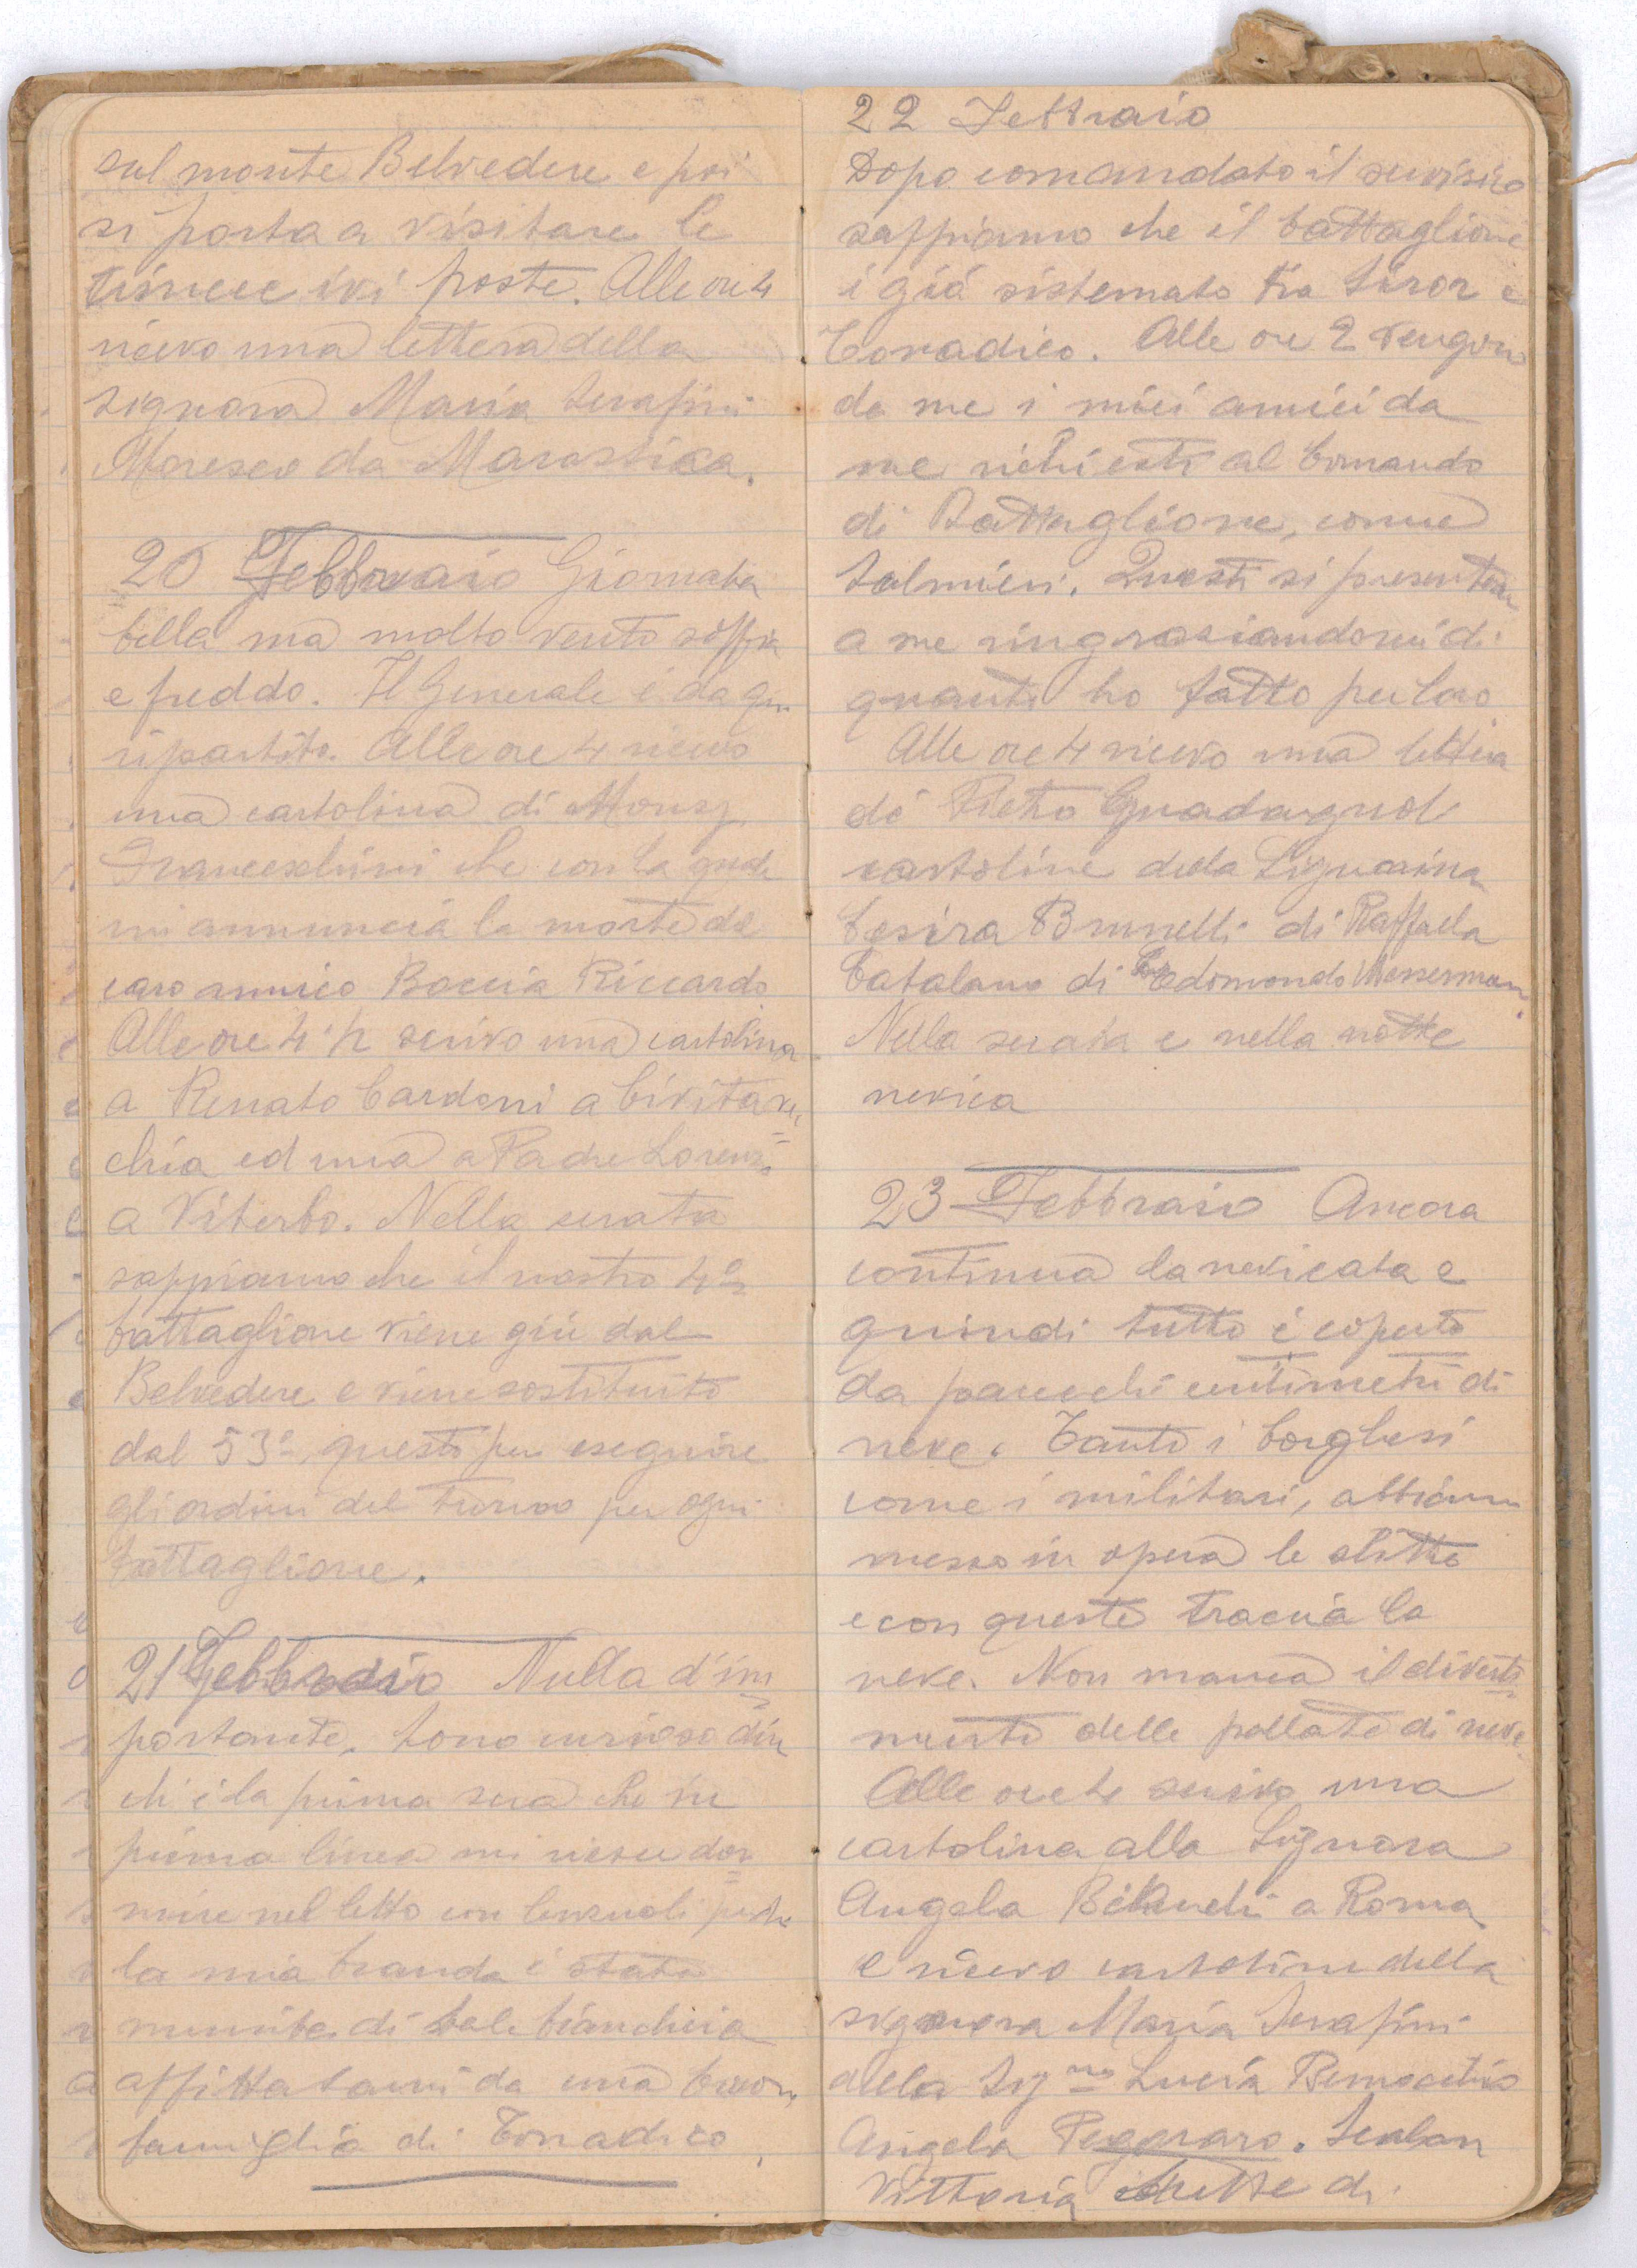 sul monte Belvedere e poi
si porta a visitare le
trincee ivi poste. Alle ore 4
ricevo una lettera della
signora Maria Serafini
Moresco da Marostica.
20 Febbraio Giornata
bella ma molto vento soffia
e freddo. Il Generale è da qui
ripartito. Alle ore 4 ricevo
una cartolina di Monsg.
Franceschini che con la quale
mi annuncia la morte del
caro amico Boccia Riccardo
Alle ore 4 ½ scrivo una cartolina
a Renato Cardoni a Civitavec
chia ed una a Padre Lorenzo
a Viterbo. Nella serata
sappiamo che il nostro 4º
battaglione viene giù dal
Belvedere e viene sostituito
dal 53º questo per eseguire
gli ordini del turno per ogni
battaglione.
21 Febbraio Nulla d'im
portante. Sono curioso
chi è la prima sera che in
prima linea mi riesce dor
mire nel letto con lenzuoli perchè
la mia branda è stata
munita di tale biancheria
affittatami da una buona
famiglia di Tonadico.
22 Febbraio
Dopo comandato il servizio
sappiamo che il battaglione
è già sistemato tra Siror e
Tonadico. Alle ore 2 vengono
da me i miei amici da
me richiesti al Comando
di Battaglione, come
Salmieri. Questi si presentano
a me ringraziandomi di
quanto ho fatto per loro
Alle ore 4 ricevo una lettera
di Pietro Guadagnoli
cartoline della Signorina
Cesira Brunelli di Raffaela
Catalano di Edomondo Messerman.
Nella serata e nella notte
nevica
23 Febbraio Ancora
continua la nevicata e
quindi tutto è coperto
da parecchi centimetri di
neve. Tanto i borghesi
come i militari, abbiamo
messo in opera le slitte
e con queste traccia la
neve. Non manca il diverti
mento delle pallate di neve.
Alle ore 4 scrivo una
cartolina alla Signora
Angela a Roma
e ricevo cartoline della
signora Maria Serafini
della Sigᶰᵃ Lucia
Angela Pegoraro. Scalon
Vittoria di